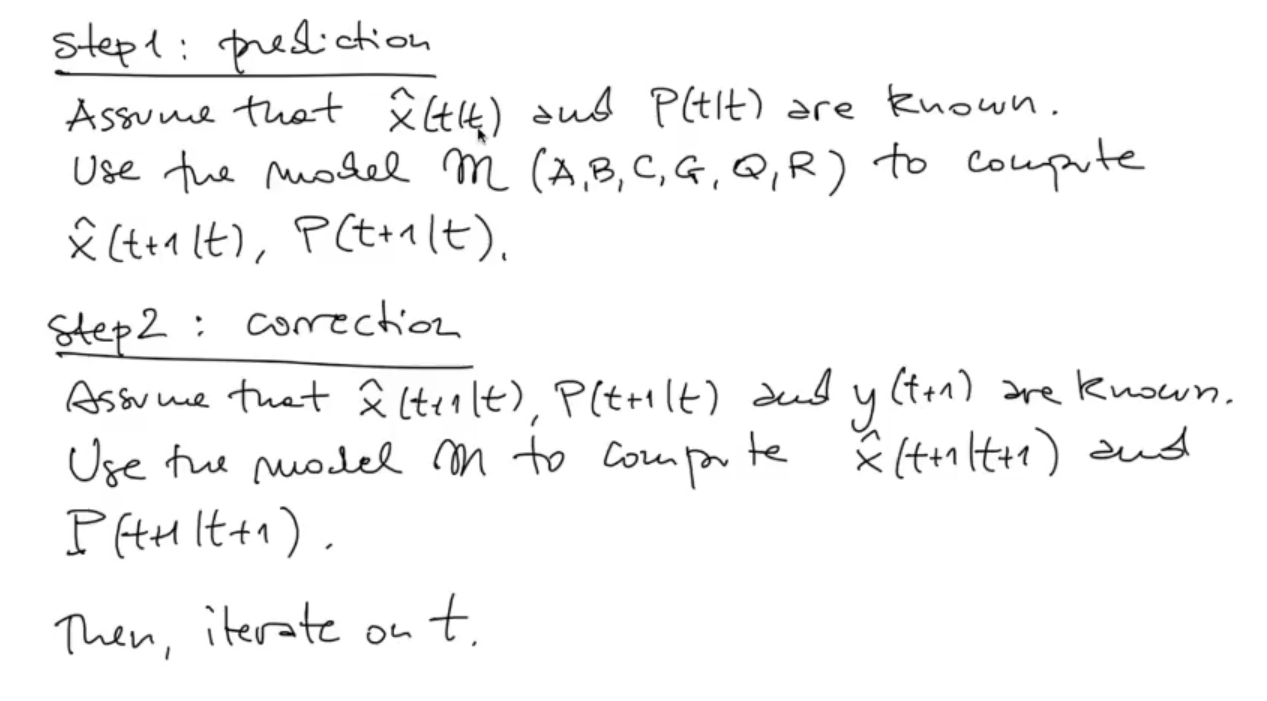 Step 1: prediction
Assume that x̂(t|t) and P(t|t) are known.
Use the model M (A,B,C,G,Q,R) to compute
x̂(t+1|t), P(t+1|t).
Step 2: correction
Assume that x̂(t+1|t), P(t+1|t) and y(t+1) are known.
Use the model M to compute x̂(t+1|t+1) and
P(t+1|t+1).
Then, iterate on t.